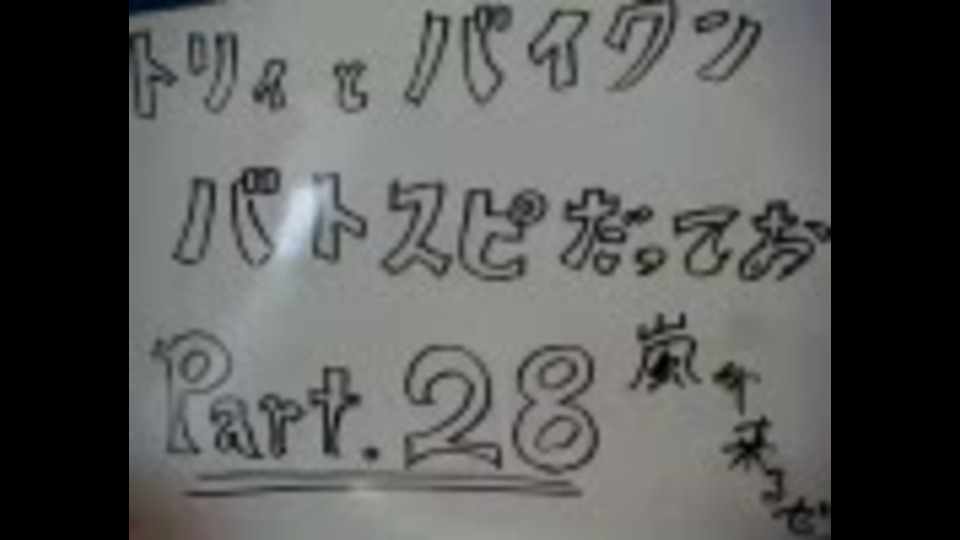 トリィと バイワン
バトスピだってお
Part.28
嵐が来るぜ